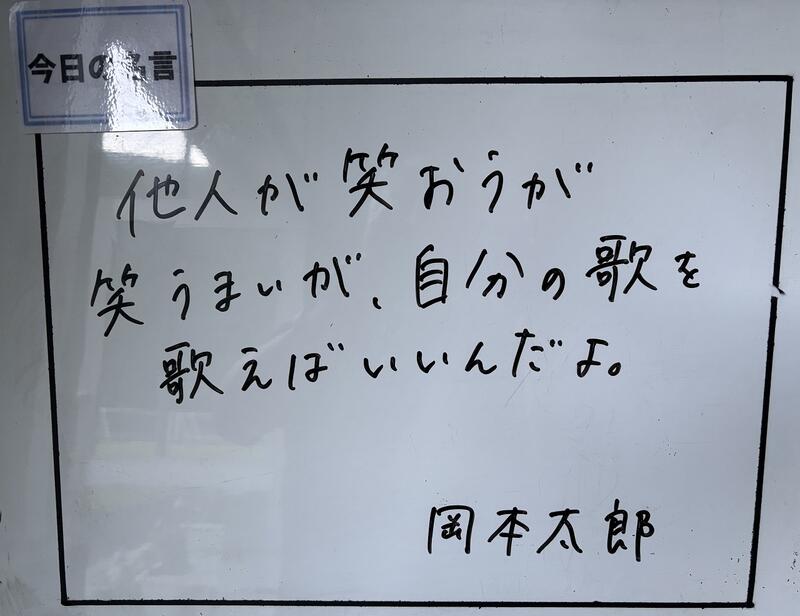 今日の名言
他人が笑おうが
笑うまいが、自分の歌を
歌えばいいんだよ。
岡本太郎